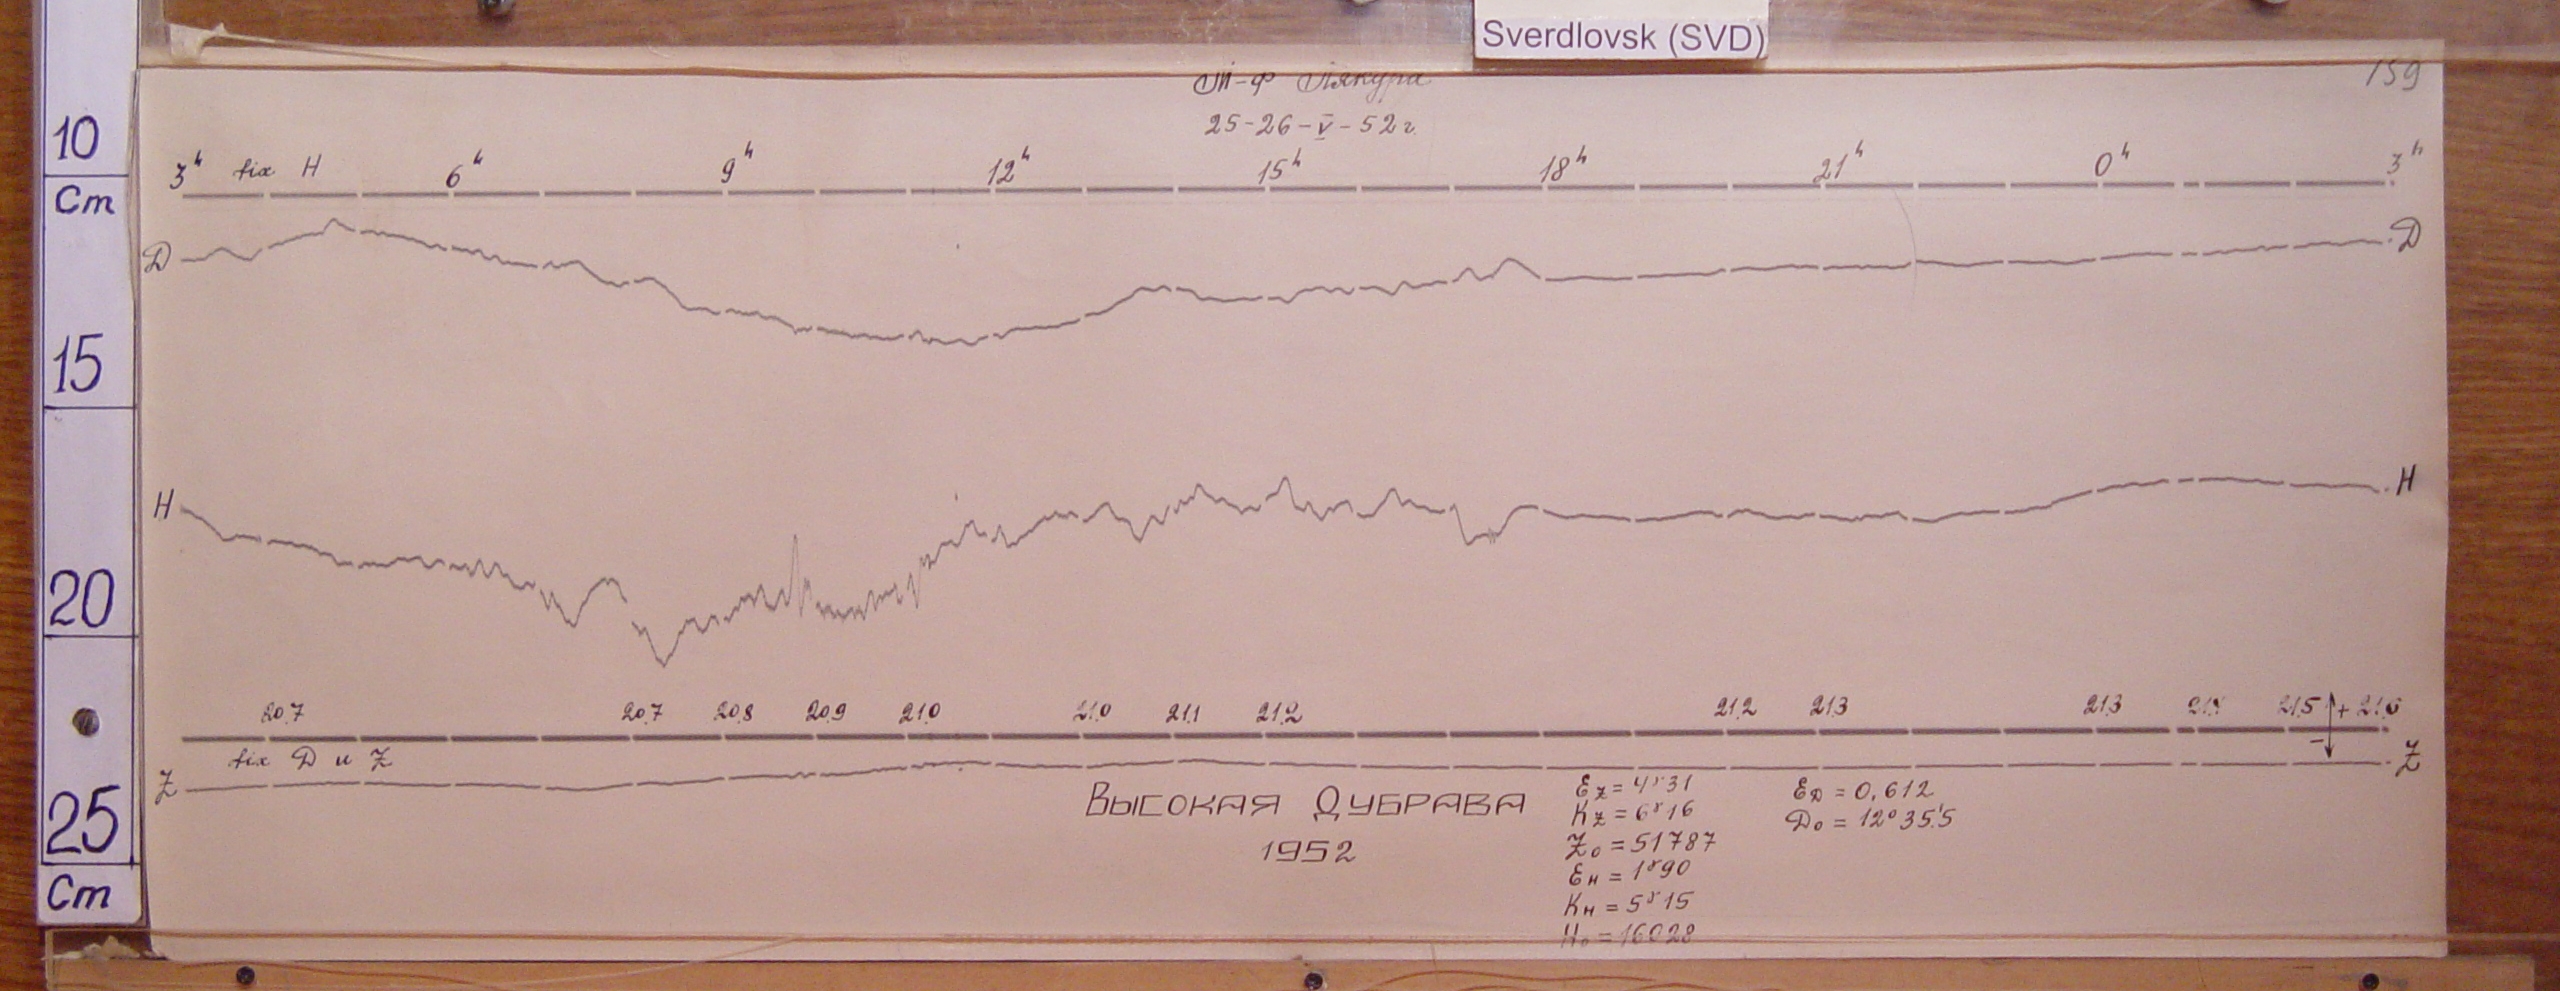 Sverdlovsk (SVD)
159
М-Ф
25-26-V-52 г.
10
Cm
15
20
25
Cm
3ʰ fix H 6ʰ 9ʰ 12ʰ 15ʰ 18ʰ 21ʰ 0ʰ 3ʰ
D D
H H
20.7 20.7 20.8 20.9 21.0 21.0 21.1 21.2 21.2 21.3 21.3 21.5 + 21.6
−
fix D и Z
Z Z
ВЫСОКАЯ ДУБРАВА
1952
Ez = 4ᵞ31
Kz = 6ᵞ16
Z₀ = 51787
Eн = 1ᵞ90
Kн = 5ᵞ15
H₀ = 16028
ED = 0,612
D₀ = 12°35.'5